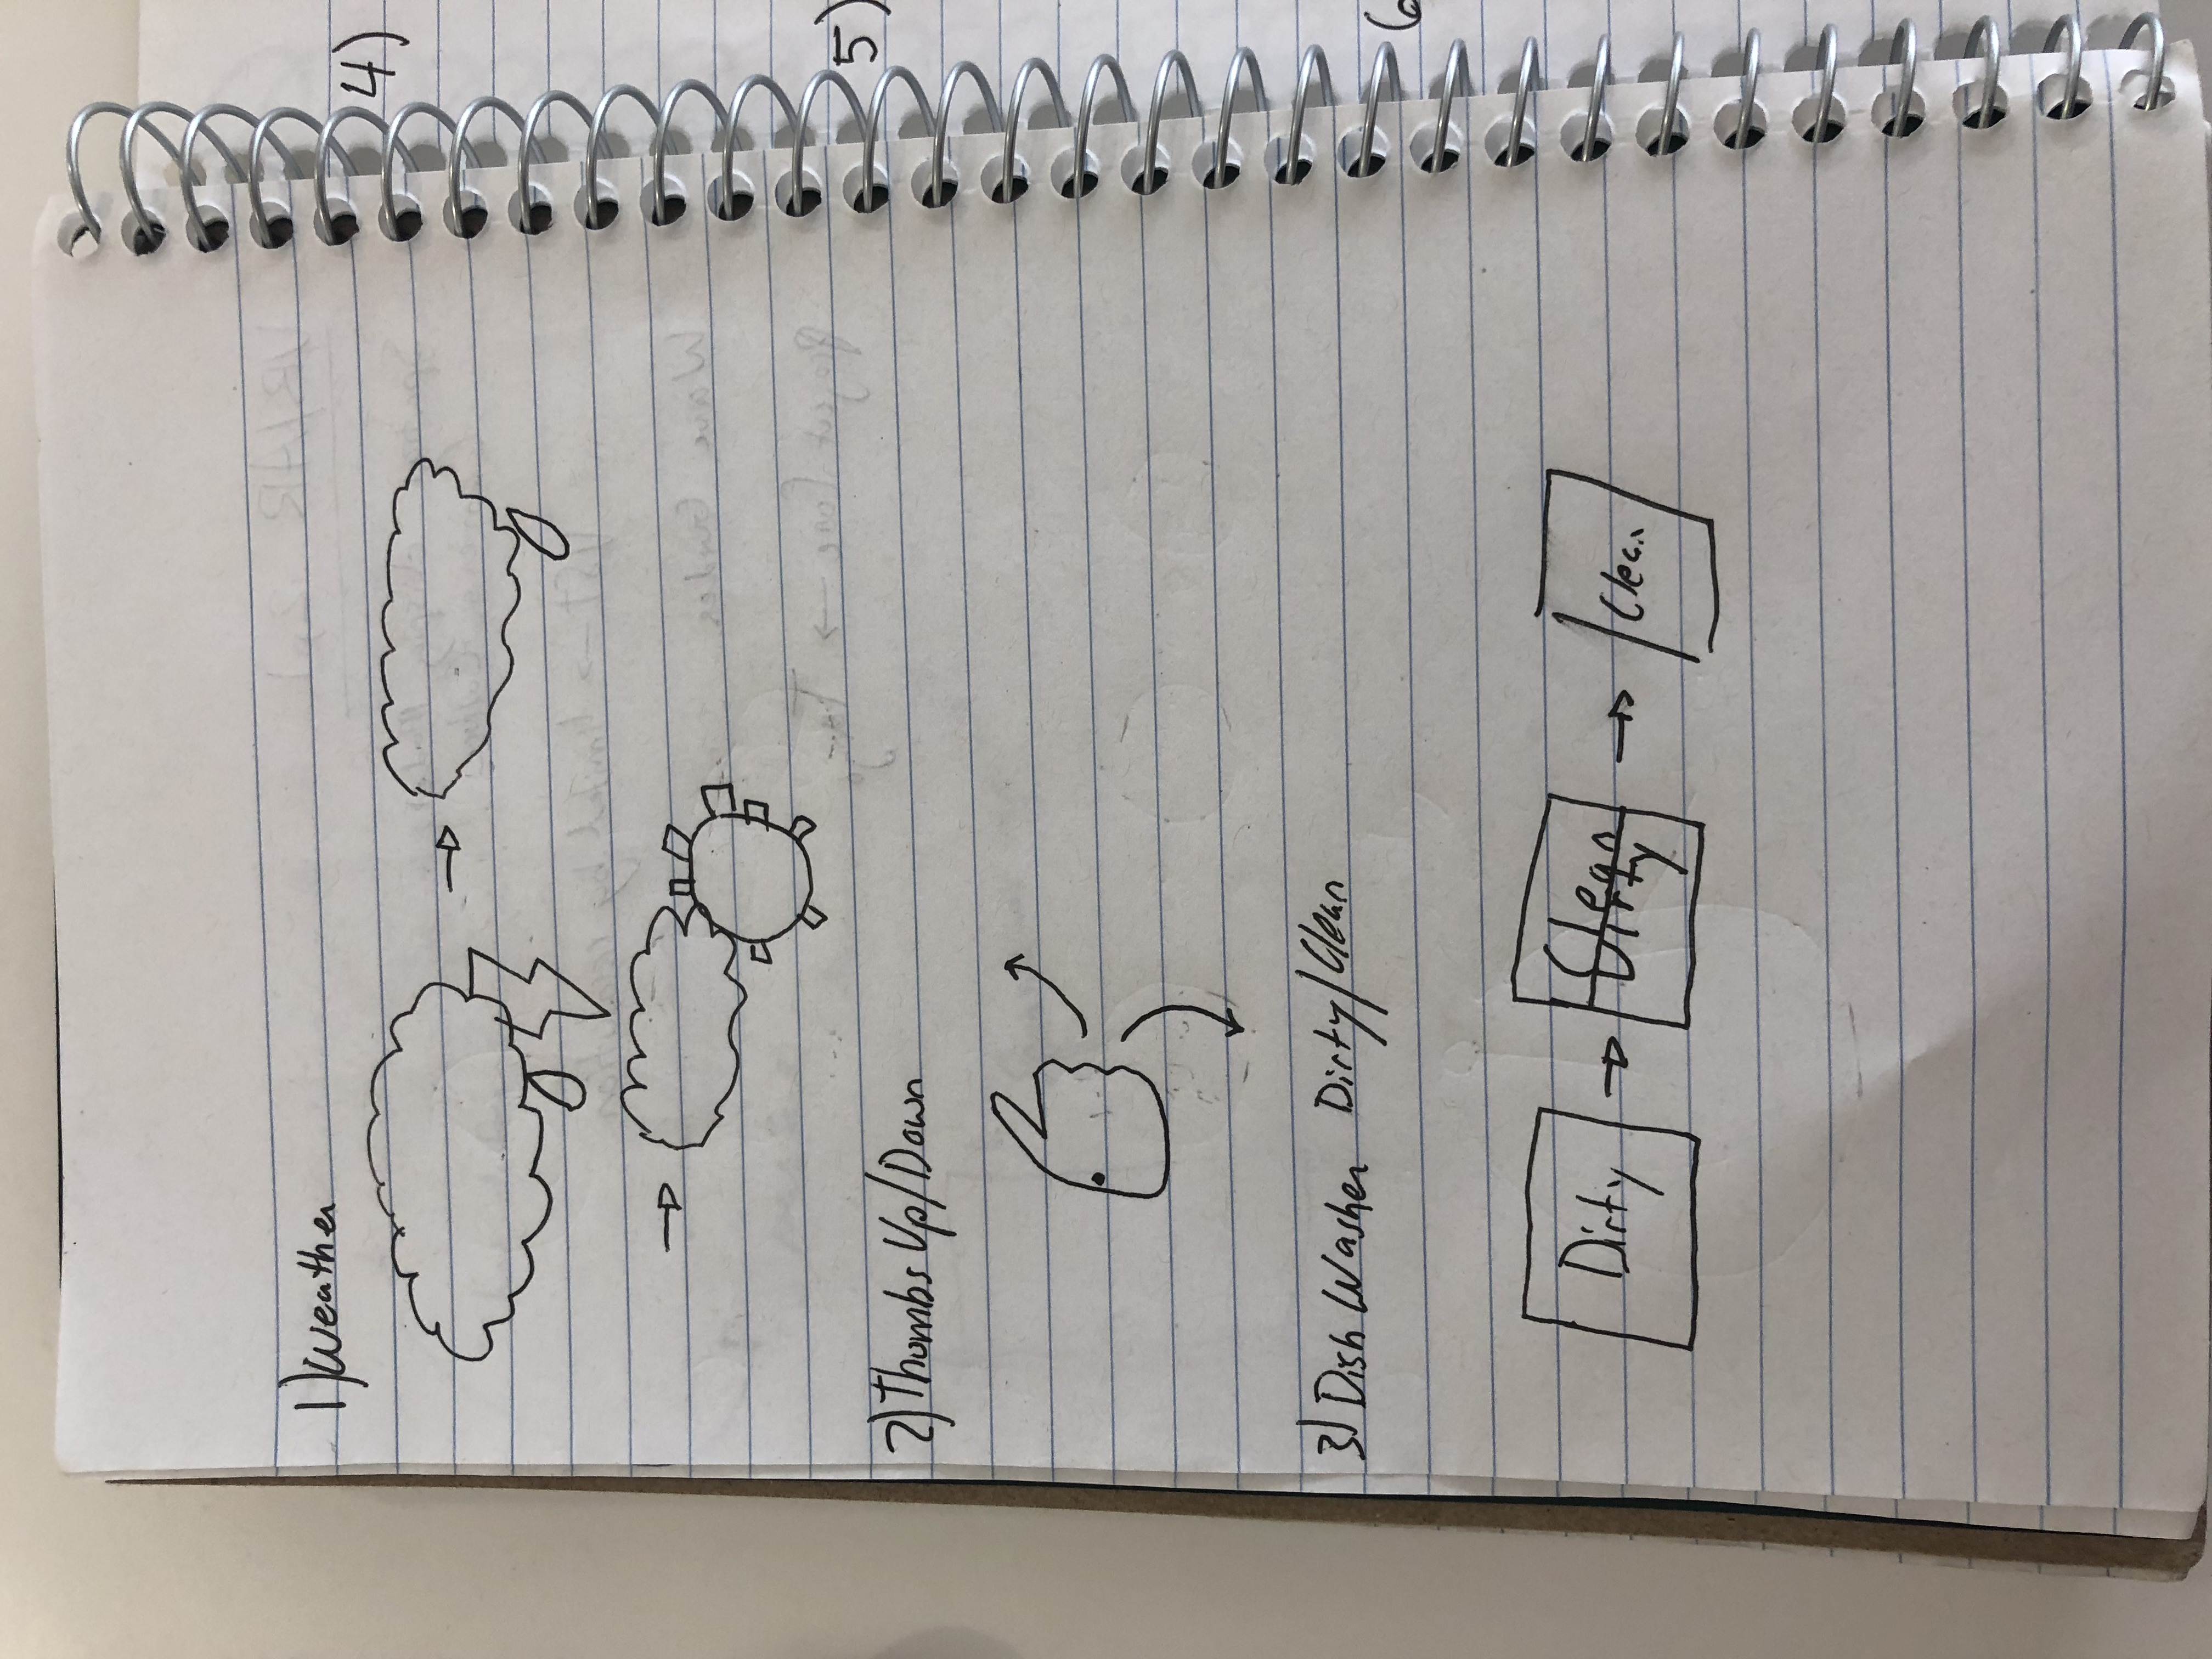 1) Weather
2) Thumbs Up/Down
3) Dish Washer Dirty/Clean
Dirty
Clean
Dirty
Clean
4)
5)
6